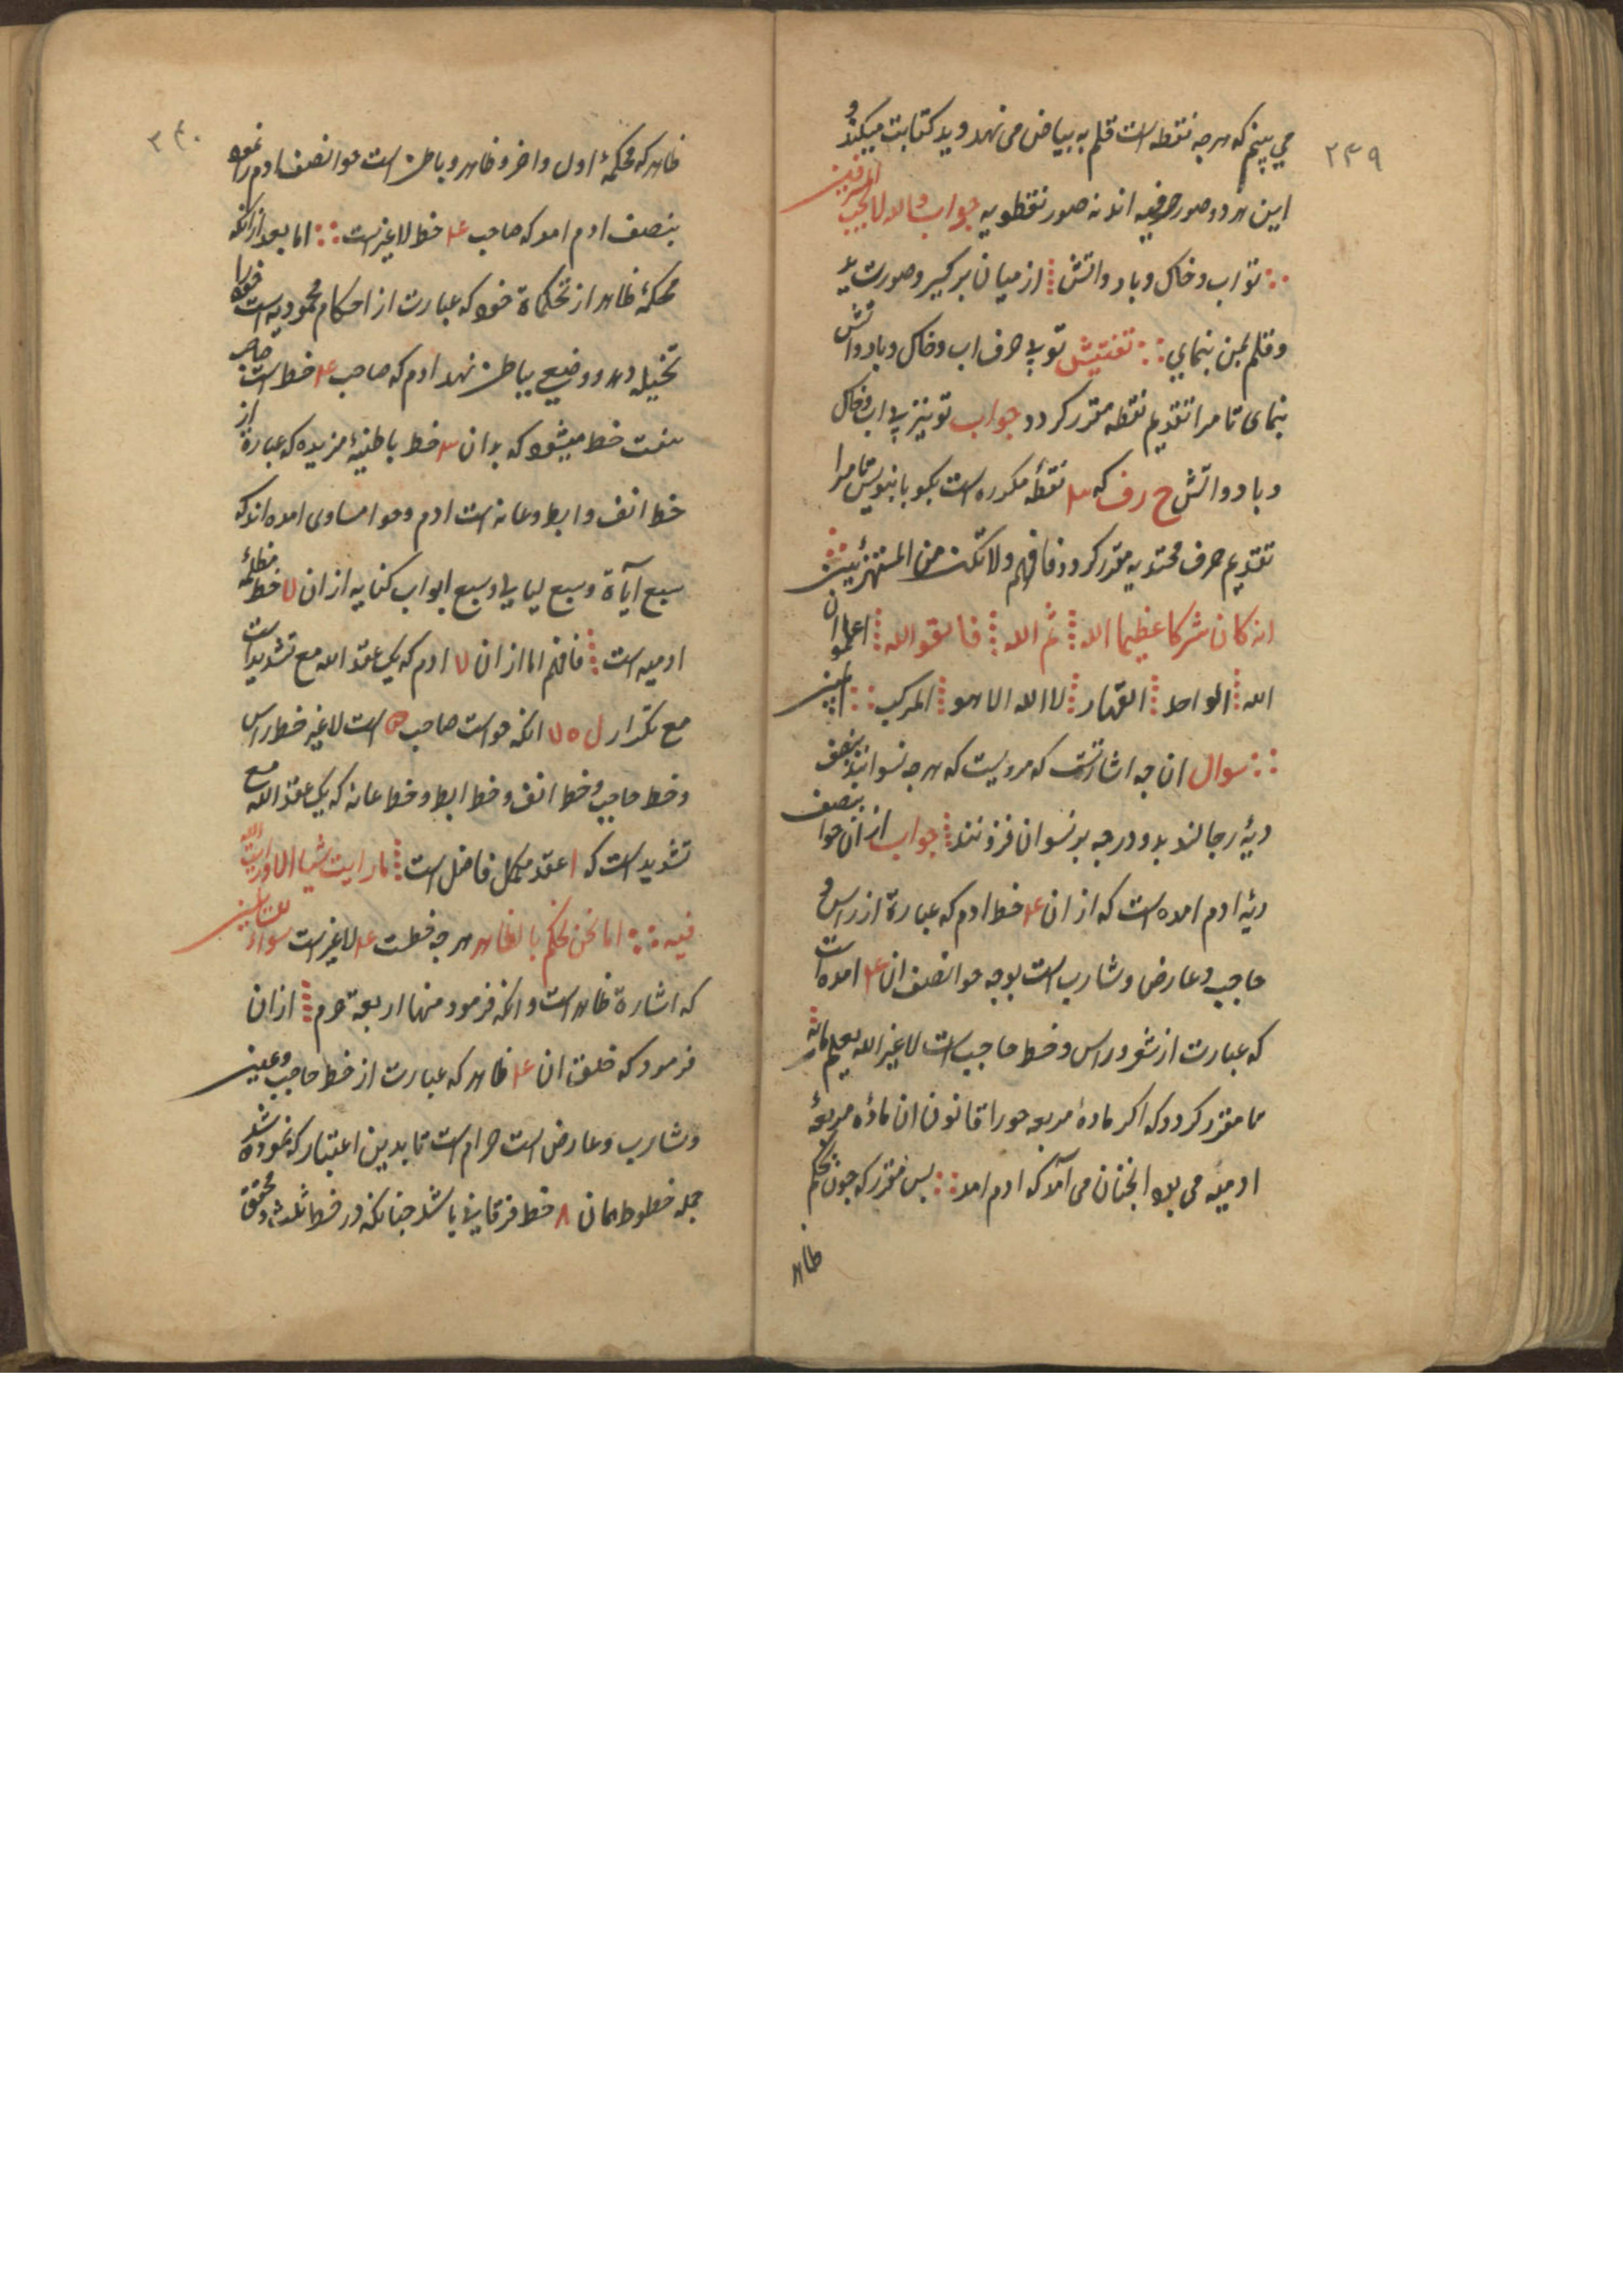 ۲۳۹
می بینم که هرچه نقطه است قلم به بیاض می نهد و ید کتابت میکند و
این هر دو صور حرفیه اند نه صور نقطویه جواب والله لا یحب المسرفین
تو اب و خاک و باد و اتش از میان برگیر و صورت ید
و قلم بمن بنمای تفتیش تو بی حرف اب و خاک و باد و اتش
بنمای تا مرا تقدیم نقطه مقرر کردد جواب تو نیز بی اب و خاک
و باد و اتش ح رف که ۳ نقطهٔ مکرره است بکو یا بنویس تا مرا
تقدیم حرف محتویه مقرر کردد فافهم ولا تکن من المستهزئین
انه کان شرکا عظیما الله ثم الله فاتقوا الله اعلموا ان
الله الواحد القهار لا اله الا هو المرکب المبین
سوال ان چه اشارتست که مرویست که هرچه نسوانند بنصف
دیهٔ رجالند بدو درجه بر نسوان فزونند جواب از ان حوا بنصف
دیهٔ ادم امده است که از ان ۴ خط ادم که عبارة از راس و
حاجب و عارض و شارب است بوجه حوا نصف ان ۴ امده است
که عبارت از شعور راس و خط حاجب است لا غیر الله یعلم مانه
ما مقرر کردد که اکر مادهٔ مربعه حورا قانون ان مادهٔ مربعهٔ
ادمیه می بود انجنان می آمد که ادم امد پس مقرر که چون بحکم
ظاهر
۲۴۰
ظاهر که محکمهٔ اول و اخر و ظاهر و باطن است حوا نصف ادم را نمود
بنصف ادم امد که صاحب ۴ خط لا غیر است اما بعد از انکه
محکمهٔ ظاهر از تحکماة خود که عبارت از احکام محمودیه است خود را
تخیله دهد و وضیع بباطن نهد ادم که صاحب ۴ خط است صاحب
هفت خط میشود که بدان ۳ خط باطنیهٔ مزیده که عبارة از
خط انف و ابط و عانه است ادم و حوا مساوی امده اند که
سبع آیاة و سبع لیالی و سبع ابواب کنایه از ان ۷ خط مظلمهٔ
ادمیه است فافهم اما از ان ۷ ادم که یک عقد الله مع تشدید است
مع تکرار ل ٥ ۷ انکه حواست صاحب ۵ است لا غیر خط راس
و خط حاجب و خط انف و خط ابط و خط عانه که یک عقد الله مع
تشدید است که ا عقد مکمل فاضل است ما رایت شیا الا و رایت الله
فیه اما نحن نحکم بالظاهر هرچه خطت ۴ لا غیر است سواء للسایلین
که اشارة ظاهر است و انکه فرمود منها اربعة حرم از ان
فرمود که خلق ان ۴ ظاهر که عبارت از خط حاجب و عین
و شارب و عارض است حرام است تا بدین اعتبار که نموده شد
جمله خطوط همان ۸ خط فرقانی باشد چنانکه در خط ثلث و محقق